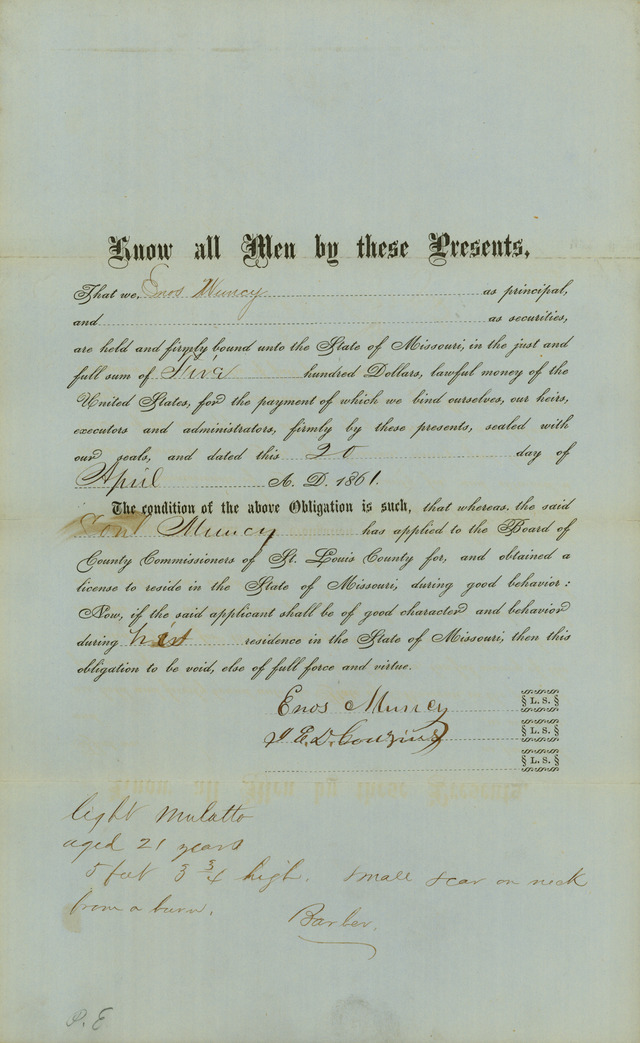 Know all Men by these Presents,
That we, Enos Muncy as principal,
and as securities,
are held and firmly bound unto the State of Missouri, in the just and
full sum of Five hundred Dollars, lawful money of the
United States, for the payment of which we bind ourselves, our heirs,
executors and administrators, firmly by these presents, sealed with
our seals, and dated this 20 day of
April A. D. 1861.
The condition of the above Obligation is such, that whereas, the said
Muncy has applied to the Board of
County Commissioners of St. Louis County for, and obtained a
license to reside in the State of Missouri, during good behavior:
Now, if the said applicant shall be of good character and behavior
during his residence in the State of Missouri, then this
obligation to be void, else of full force and virtue.
Enos Muncy § L. S. §
J E. D. Couzins § L. S. §
§ L. S. §
light Mulatto
aged 21 years
5 feet 3 3/4 high. small scar on neck
from a burn. Barber.
P. E